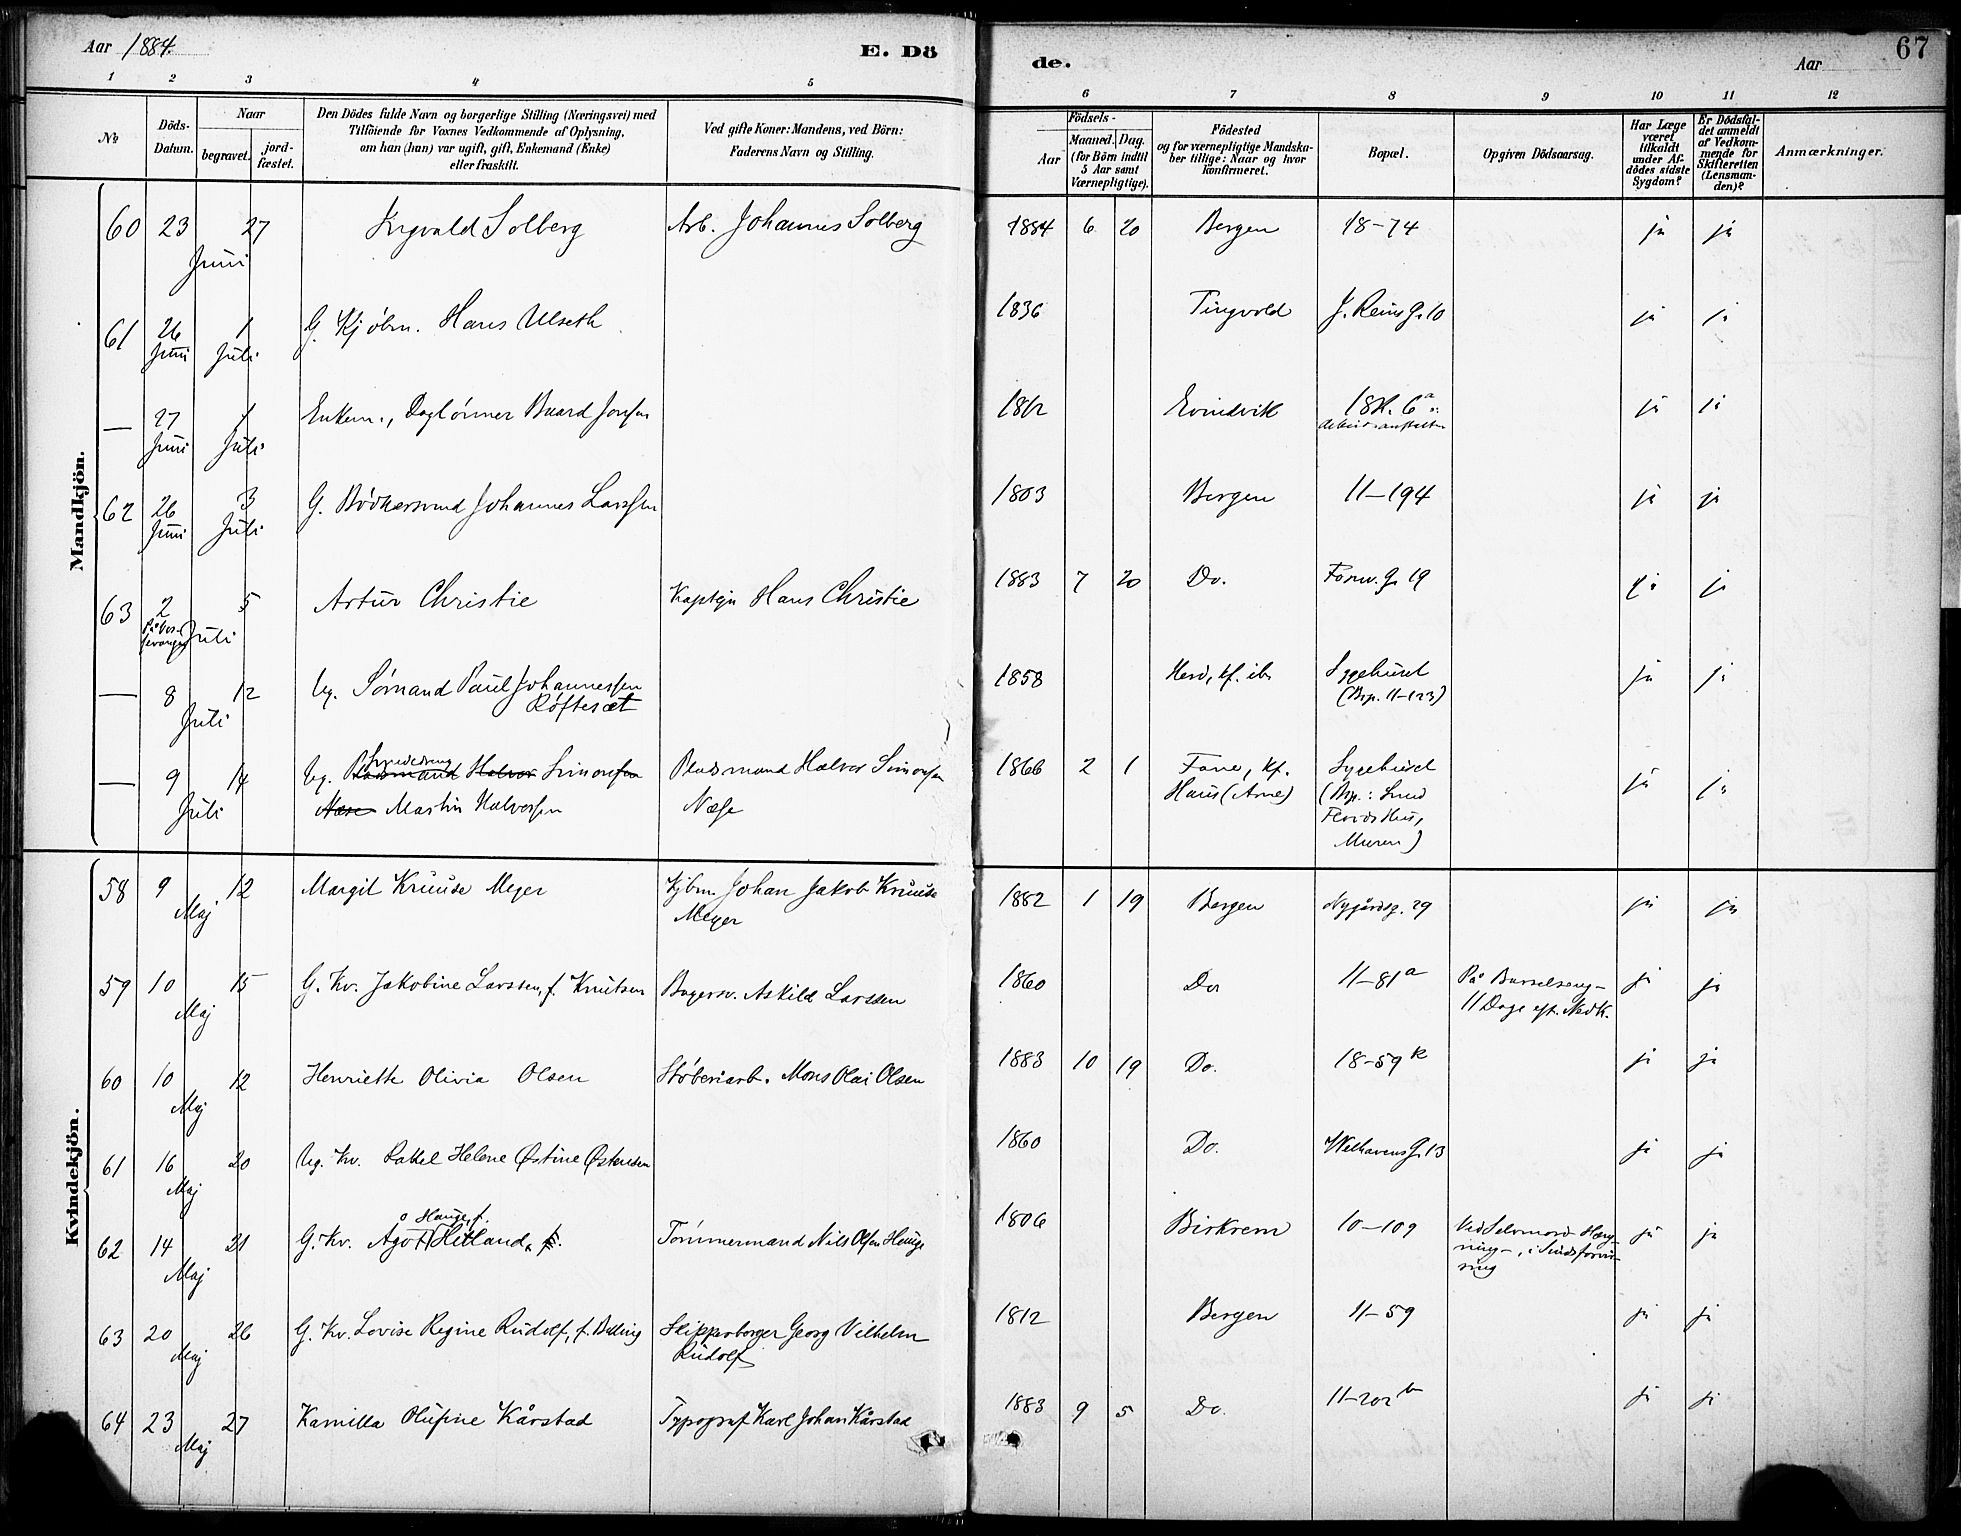 Aar 1884.
E. Dö
de.
Aar
67
1 2 3 4 5 6 7 8 9 10 11 12
№
Döds-Datum.
Naar
begravet.
jord-fæstet.
Den Dödes fulde Navn og borgerlige Stilling (Næringsvei) med
Tilföiende for Voxnes Vedkommende af Oplysning,
om han (hun) var ugift, gift, Enkemand (Enke)
eller fraskilt.
Ved gifte Koner: Mandens, ved Börn:
Faderens Navn og Stilling.
Födsels-
Aar
Maaned. Dag.
(for Börn indtil
5 Aar samt
Værnepligtige).
Födested
og for værnepligtige Mandska-
ber tillige: Naar og hvor
konfirmeret.
Bopæl.
Opgiven Dödsaarsag.
Har Læge
været
tilkaldt
under Af-
dödes sidste
Sygdom?
Er Dödsfal-
det anmeldt
af Vedkom-
mende for
Skifteretten
(Lensman-
den)?
Anmærkninger.
Mandkjön.
60 23 27 Juni Ingvald Solberg Arb. Johannes Solberg 1884 6 20 Bergen 18-74 ja ja
61 26 Juni 1 Juli G. Kjøbm. Hans Ulseth 1836 Tingvold J. Reins G. 10 ja ja
— 27 Juni 1 Juli Enkem., Daglønner Baard Jonsen Evindvik 18 R. 6a ja ja
62 26 Juni 3 Juli G. Bødkersvend Johannes Larssen 1803 Bergen 11-194 ja ja
63 2 5 Juli Artur Christie Kaptejn Hans Christie 1883 7 20 Do. Forw. G. 19 ja ja
— 8 12 Juli Ug. Sømand Paul Johannessen
Røfteset 1858 Herö, kf. ib. Sygehuset
(Bp. 11-123) ja ja
— 9 14 Juli Ug. Smededreng Pladsmand Halvor Simonsen
Næse Martin Halvorsen Pladsmand Halvor Simonsen
Næse 1866 2 1 Fane, kf.
Haus (Arne) Sygehuset
(Bp.: Smed
Hus,
Muren) ja ja
Kvindekjön.
58 9 12 Maj Margit Kruuse Meyer Kjbm. Johan Jakob Kruuse
Meyer 1882 1 19 Bergen Nygårdsg. 29 ja ja
59 10 15 Maj G. Kv. Jakobine Larssen, f. Knutsen Bagersv. Askild Larssen 1860 Do 11-81a På Barselseng-
11 Dage eft. Nedk. ja ja
60 10 12 Maj Henriette Olivia Olsen Støberiarb. Mons Olai Olsen 1883 10 19 Do. 18-59k ja ja
61 16 20 Maj Ug. Kv. Rakel Helene Østine Østensen 1860 Do. Welhavens G. 13 ja ja
62 14 21 Maj G. Kv. Ågot Hauge, f. Hetland, f. Tømmermand Nils Olsen Hauge 1806 Birkrem 10-109 Ved Selvmord - Hæng-
ning-, i Sindsforvir-
ring ja ja
63 20 26 Maj G. Kv. Lovise Regine Rudolf, f. Belling Skipperborger Georg Vilhelm
Rudolf 1812 Bergen 11-59 ja ja
64 23 27 Maj Kamilla Olufine Kårstad Typograf Karl Johan Kårstad 1883 9 5 Do. 11-202b ja ja